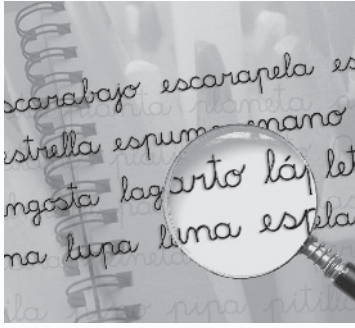 scarabajo escarapela es
estrella espuma enano
ngosta lagarto láp let
na lupa luna espla
ila pipa pitill